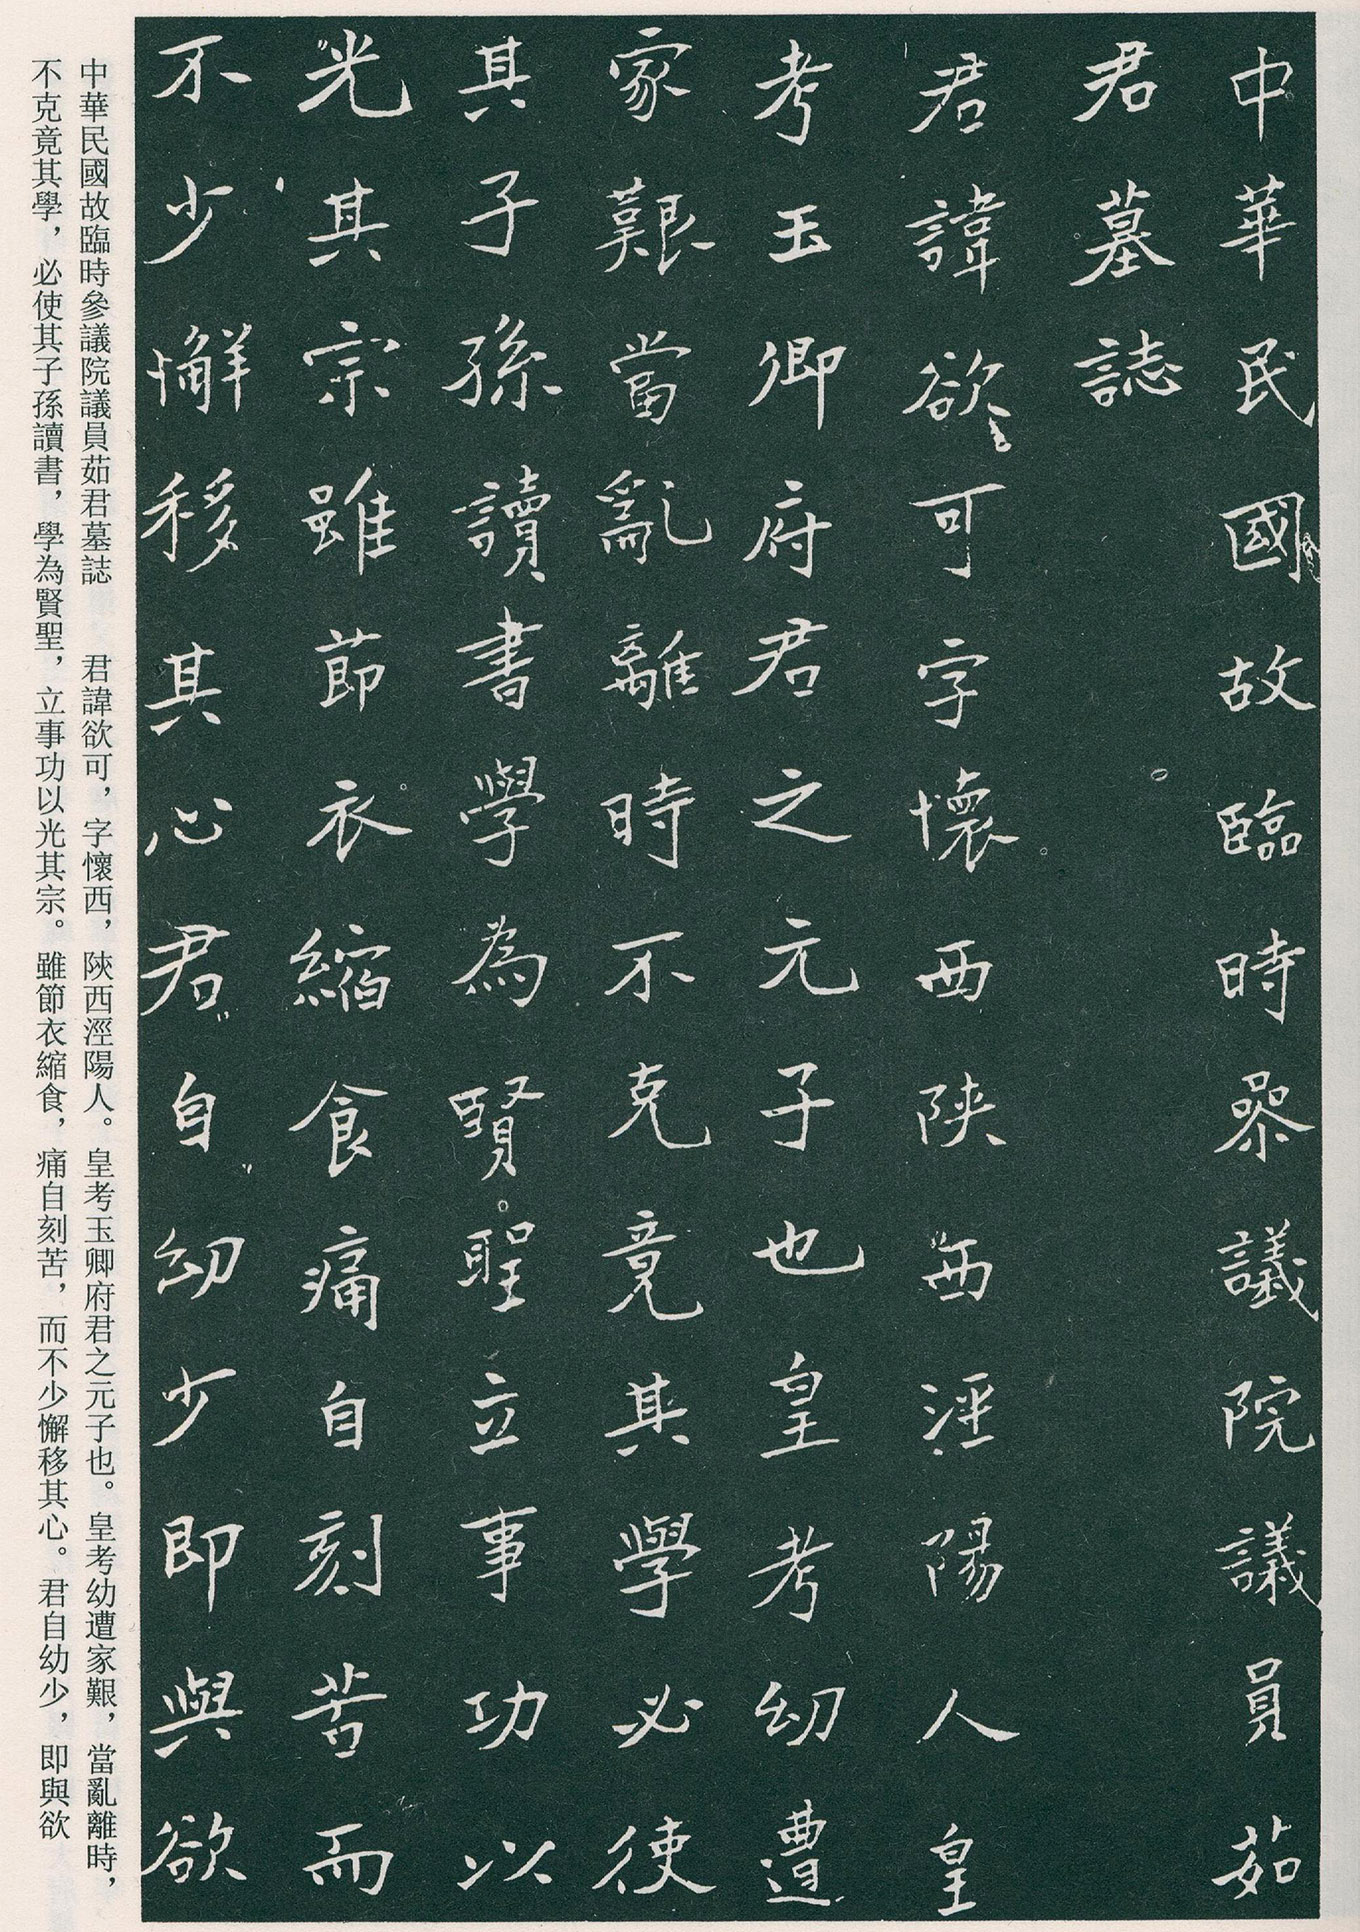 中華民國故臨時參議院議員茹
君墓誌
君諱欲可字懷西陝西涇陽人皇
考玉卿府君之元子也皇考幼遭
家艱當亂離時不克竟其學必使
其子孫讀書學為賢聖立事功以
光其宗雖節衣縮食痛自刻苦而
不少懈移其心君自幼少即與欲
中華民國故臨時參議院議員茹君墓誌　君諱欲可，字懷西，陝西涇陽人。皇考玉卿府君之元子也。皇考幼遭家艱，當亂離時，
不克竟其學，必使其子孫讀書，學為賢聖，立事功以光其宗。雖節衣縮食，痛自刻苦，而不少懈移其心。君自幼少，即與欲